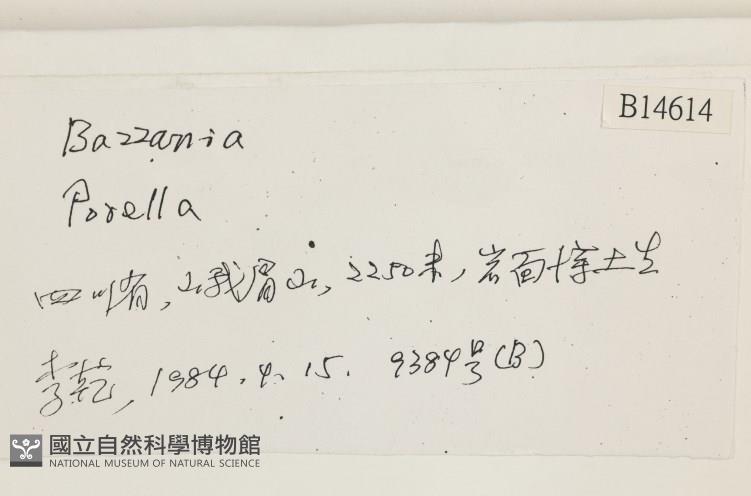 B14614
Bazzania
Porella
四川省,峨眉山,2250米,岩面薄土生
李乾,1984.4.15. 9384号(B)
國立自然科學博物館
NATIONAL MUSEUM OF NATURAL SCIENCE